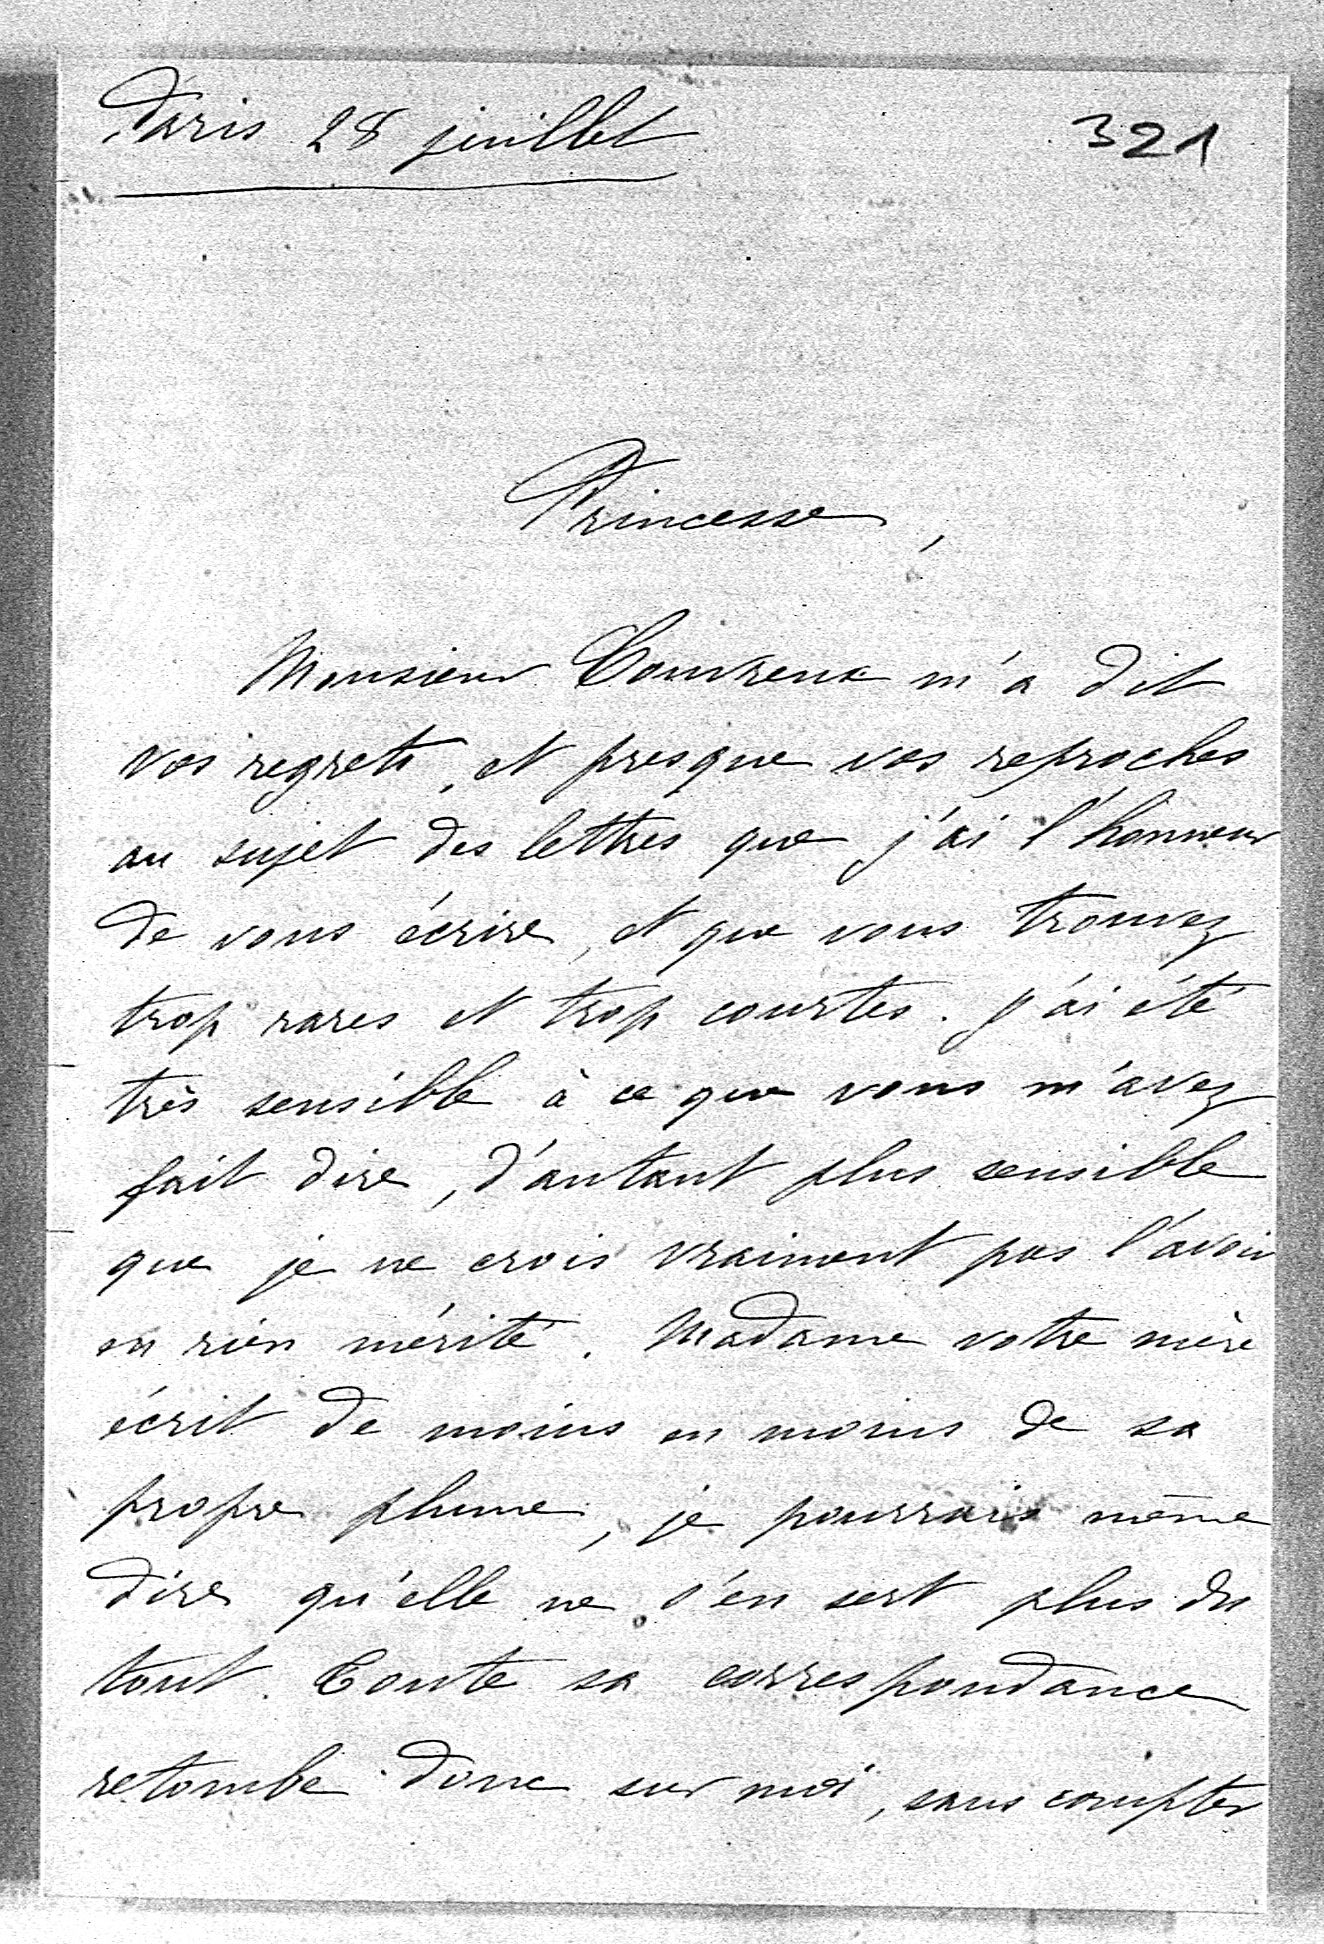 Paris 28 juillet
321
Princesse,
Monsieur Couvreux m'a dit
vos regrets, et presque vos reproches
au sujet des lettres que j'ai l'honneur
de vous écrire, et que vous trouvez
trop rares et trop courtes. J'ai été
très sensible à ce que vous m'avez
fait dire, d'autant plus sensible
que je ne crois vraiment pas l'avoir
en rien mérité. Madame votre mère
écrit de moins en moins de sa
propre plume, je pourrais même
dire qu'elle ne s'en sert plus du
tout. Toute sa correspondance
retombe donc sur moi, sans compter